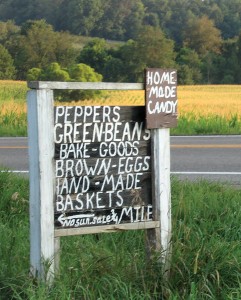 HOME
MADE
CANDY
PEPPERS
GREENBEANS
BAKE-GOODS
BROWN-EGGS
HAND-MADE
BASKETS
NO SUN. SALE 1/4 MILE